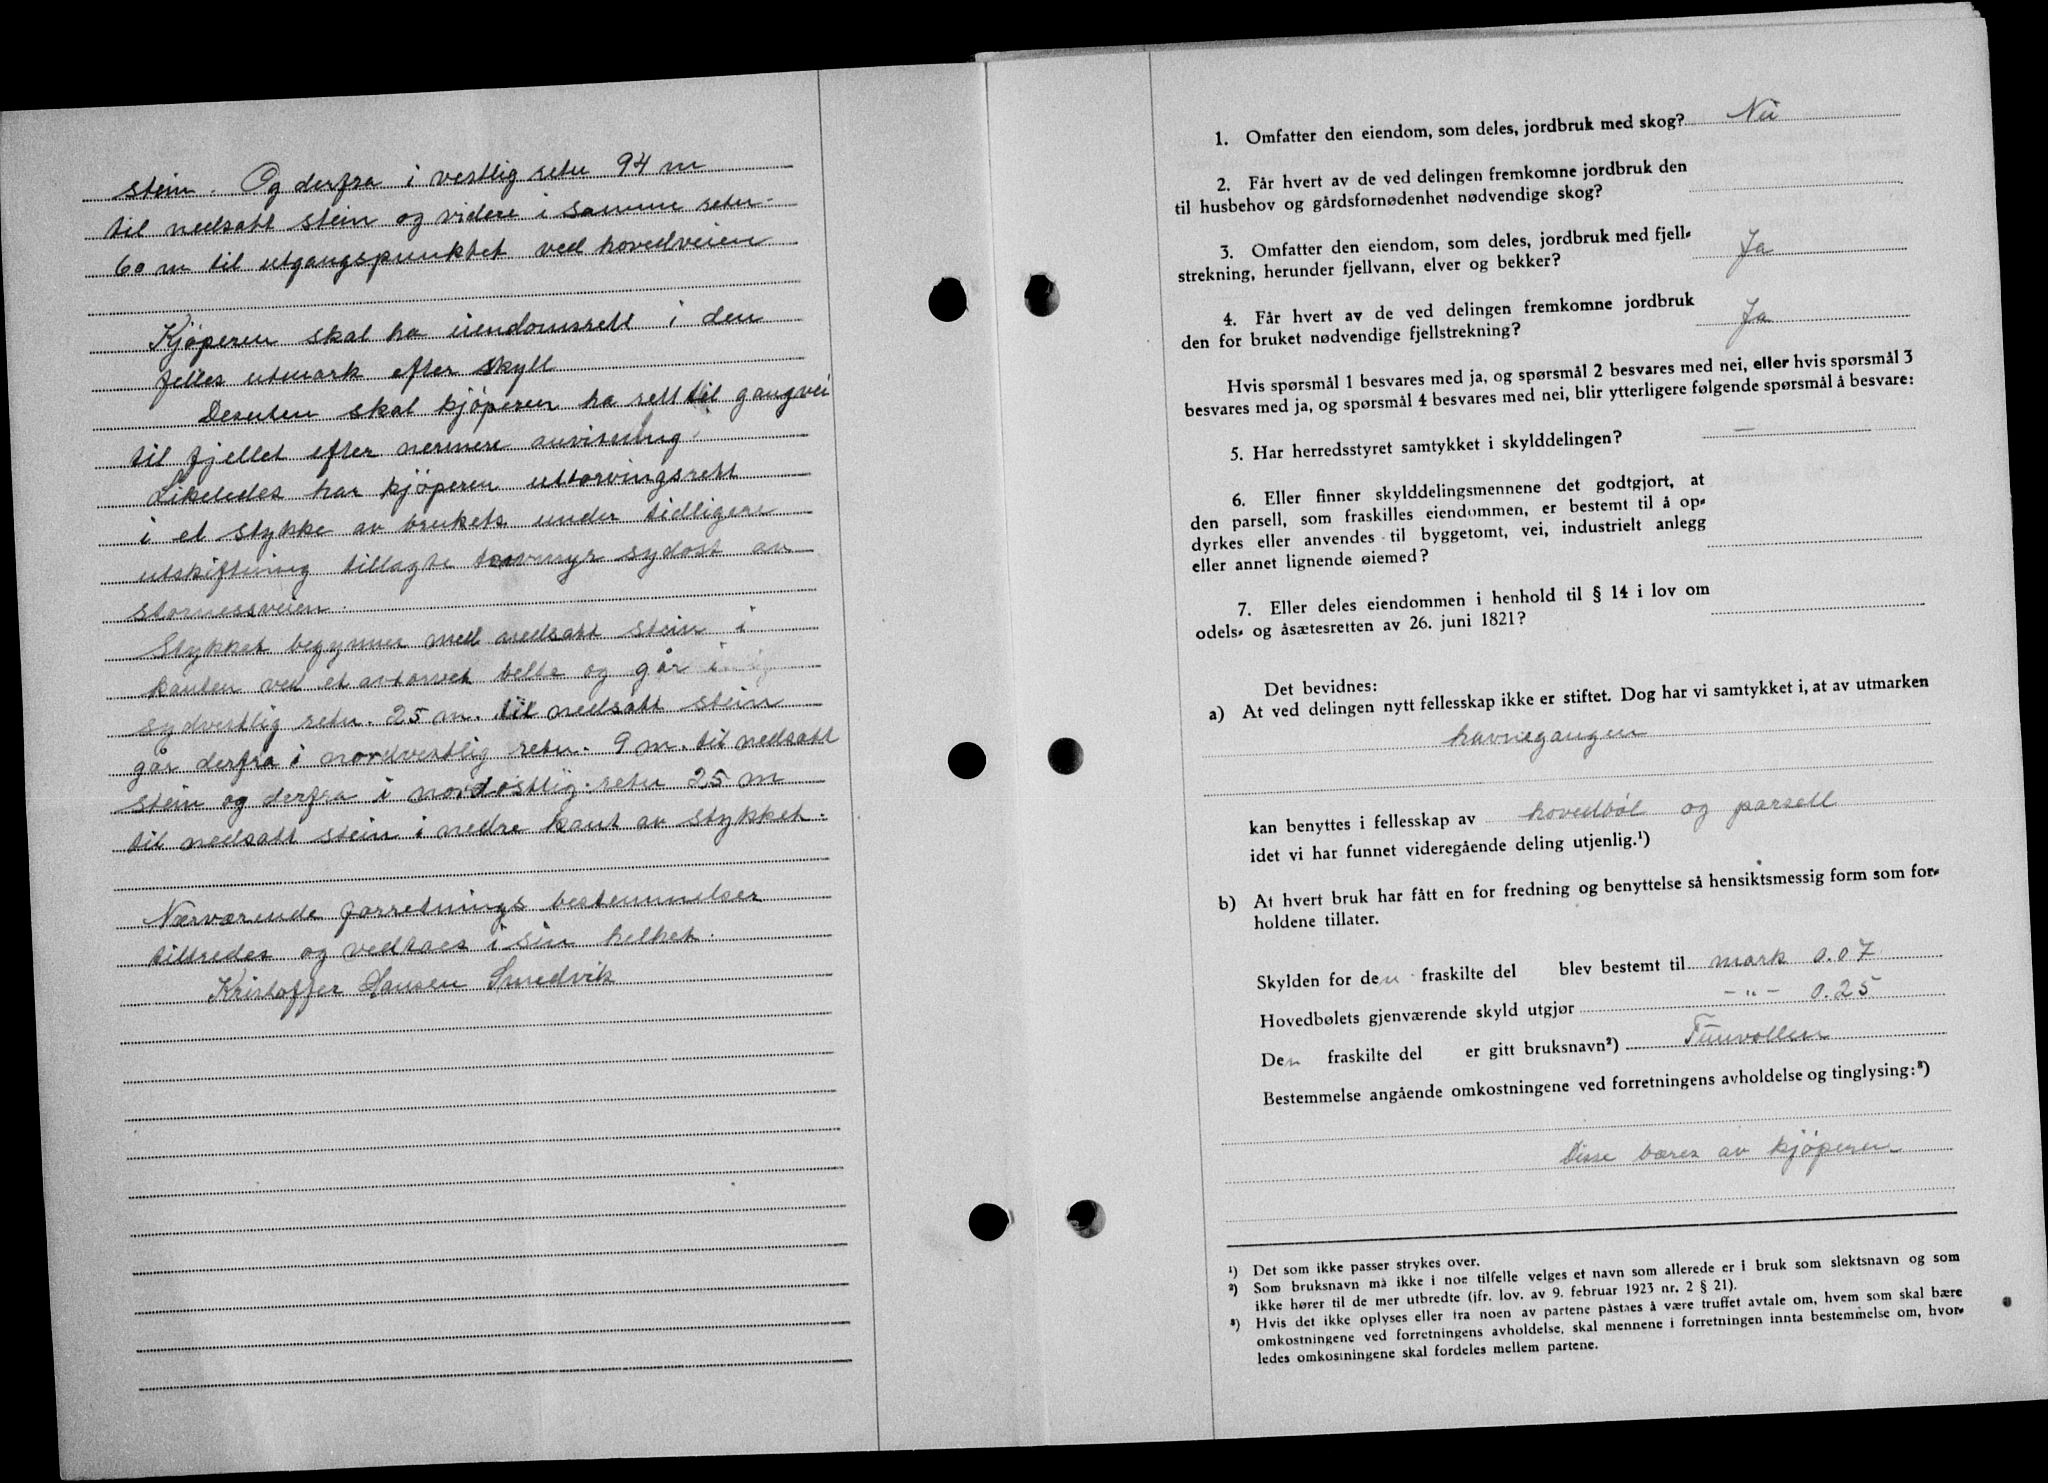 stein. Og derfra i vestlig retn 94 m
til nedsatt stein og videre i samme retn.
60 m til utgangspunktet ved hovedveien
Kjøperen skal ha eiendomsrett i den
felles utmark efter skyll
Desuten skal kjøperen ha rett til gangvei
til fjellet efter nermere anvisning.
Likeledes har kjøperen uttorvingsrett
i et stykke av brukets under tidligere
utskiftning tillagte torvmyr sydost av
stornessveien.
Stykket begynner med nedsatt stein i
kanten ved et avtorvet belte og går i
sydvestlig retn. 25 m. til nedsatt stein
går derfra i nordvestlig retn. 9 m. til nedsatt
stein og derfra i nordøstlig retn 25 m
til nedsatt stein i nedre kant av stykket.
Nærværende forretnings bestemmelser
tiltredes og vedtaes i sin helhet.
Kristoffer Hansen Smedvik
1. Omfatter den eiendom, som deles, jordbruk med skog? Nei
2. Får hvert av de ved delingen fremkomne jordbruk den
til husbehov og gårdsfornødenhet nødvendige skog?
3. Omfatter den eiendom, som deles, jordbruk med fjell-
strekning, herunder fjellvann, elver og bekker? Ja
4. Får hvert av de ved delingen fremkomne jordbruk
den for bruket nødvendige fjellstrekning? Ja
Hvis spørsmål 1 besvares med ja, og spørsmål 2 besvares med nei, eller hvis spørsmål 3
besvares med ja, og spørsmål 4 besvares med nei, blir ytterligere følgende spørsmål å besvare:
5. Har herredsstyret samtykket i skylddelingen? —
6. Eller finner skylddelingsmennene det godtgjort, at
den parsell, som fraskilles eiendommen, er bestemt til å op-
dyrkes eller anvendes til byggetomt, vei, industrielt anlegg
eller annet lignende øiemed?
7. Eller deles eiendommen i henhold til § 14 i lov om
odels- og åsætesretten av 26. juni 1821?
Det bevidnes:
a) At ved delingen nytt fellesskap ikke er stiftet. Dog har vi samtykket i, at av utmarken
havnegangen
kan benyttes i fellesskap av hovedbøl og parsell
idet vi har funnet videregående deling utjenlig.¹)
b) At hvert bruk har fått en for fredning og benyttelse så hensiktsmessig form som for-
holdene tillater.
Skylden for den fraskilte del blev bestemt til mark 0.07
Hovedbølets gjenværende skyld utgjør -"- 0.25
Den fraskilte del er gitt bruksnavn²) Tunvollen
Bestemmelse angående omkostningene ved forretningens avholdelse og tinglysing:³)
Disse bæres av kjøperen
¹) Det som ikke passer strykes over.
²) Som bruksnavn må ikke i noe tilfelle velges et navn som allerede er i bruk som slektsnavn og som
ikke hører til de mer utbredte (jfr. lov. av 9. februar 1923 nr. 2 § 21).
³) Hvis det ikke oplyses eller fra noen av partene påstaes å være truffet avtale om, hvem som skal bære
omkostningene ved forretningens avholdelse, skal mennene i forretningen innta bestemmelse om, hvor-
ledes omkostningene skal fordeles mellem partene.